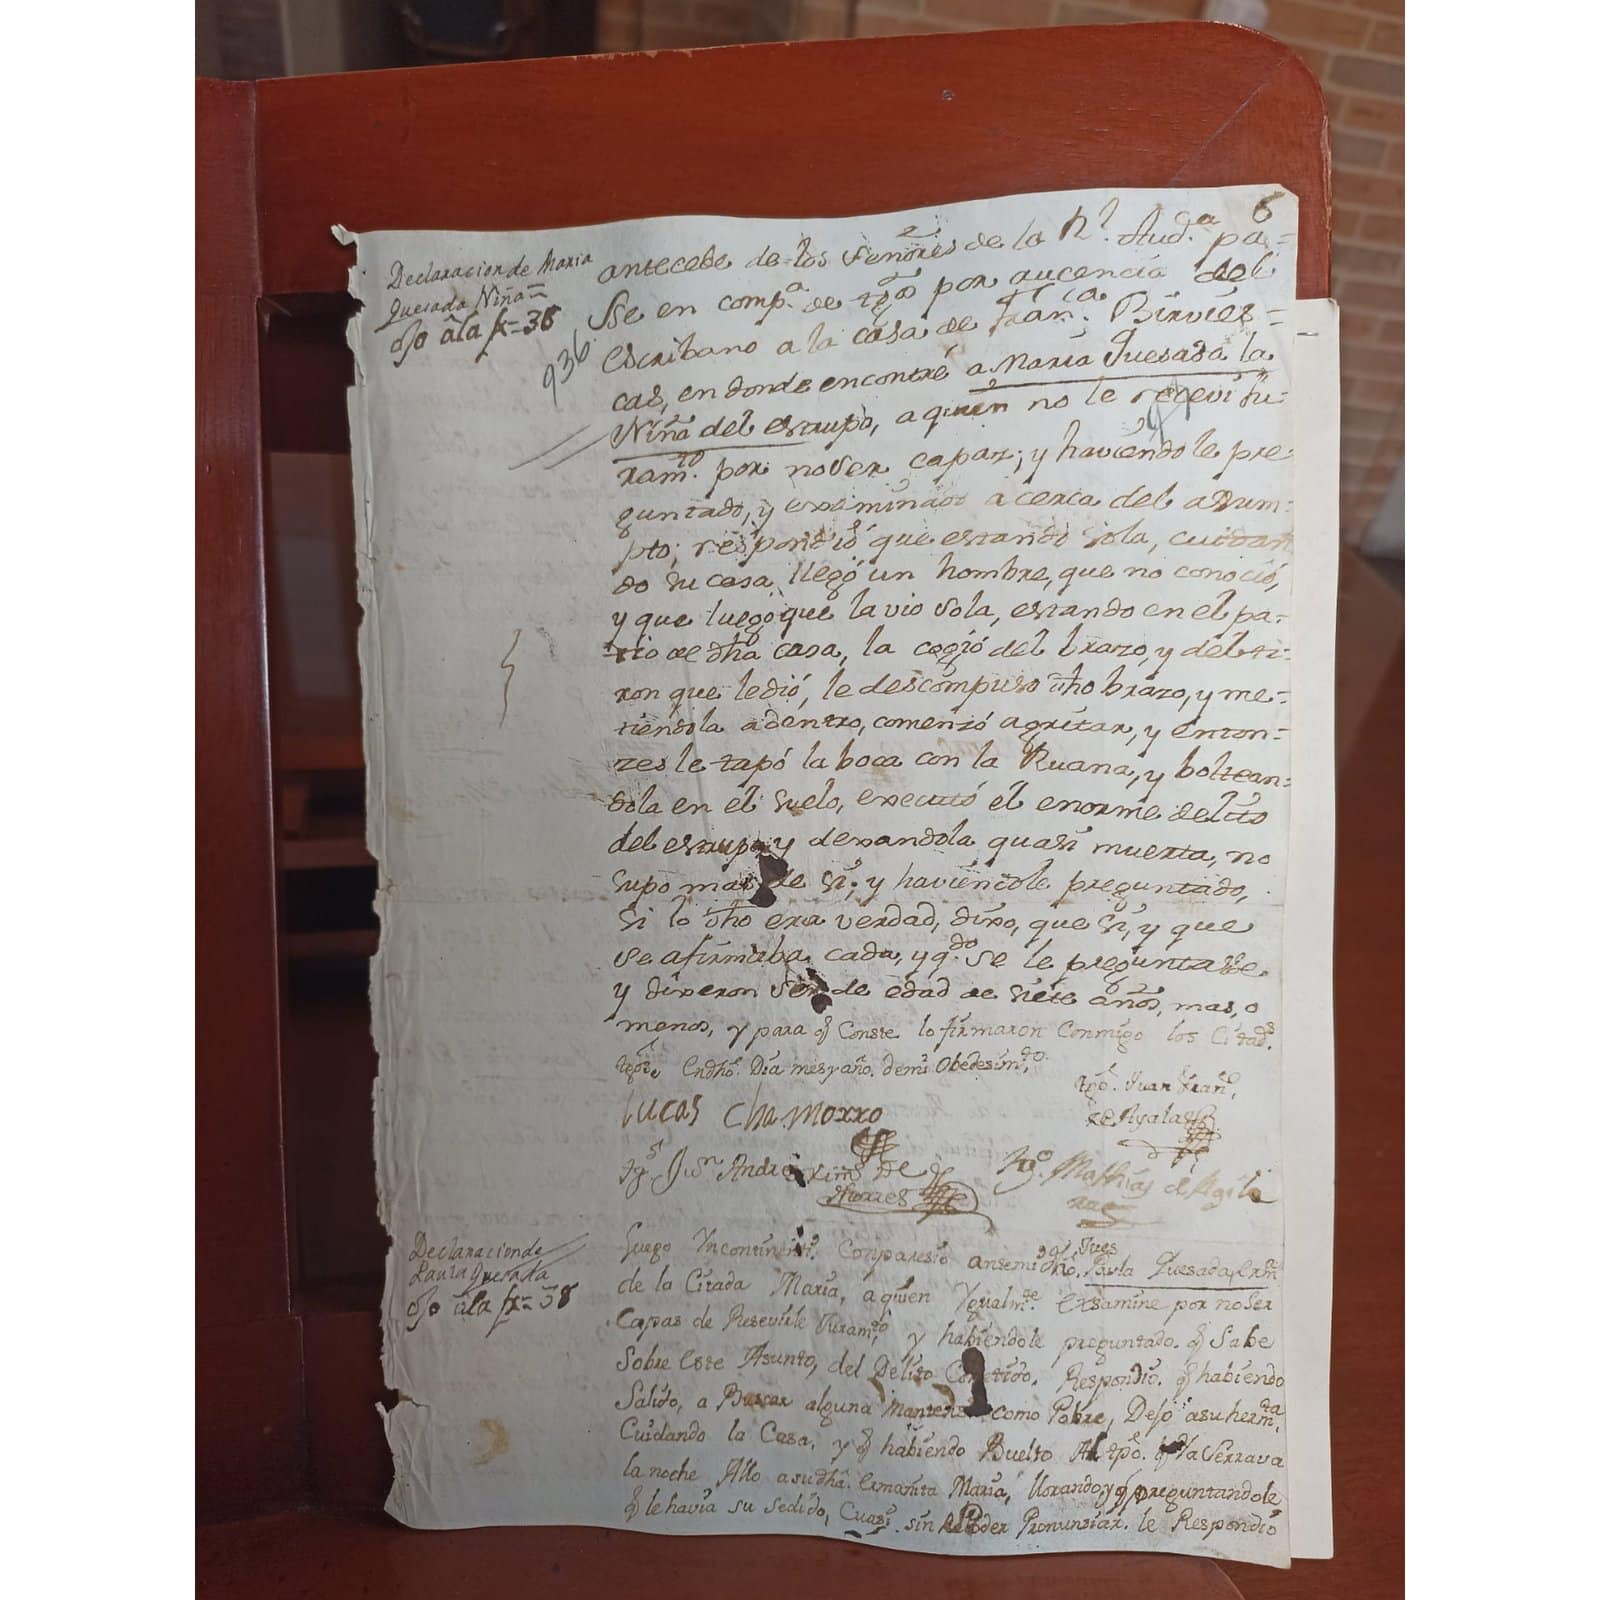 6
Declaracion de Maria
Quesada Niña=
ojo âla f.= 38
936
antecede de los Señores de la Rl. Auda. pa=
sse en compa. de tgos por aucencia del
escribano a la casa de Franca. Birvies=
cas, en donde encontré a Maria Quesada la
Niña del estrupo, a quien no le recevi Ju=
ramto. por no ser capaz; y haviendole pre
guntado, y examinado acerca del asum=
pto; respondió, que estando sola, cuidan
do su casa, llegó un hombre, que no conoció,
y que luego que la vio sola, estando en el pa=
tio de dha casa, la cogió del brazo, y del ti=
ron que le dió, le descompuso dho brazo, y me=
tiendola adentro, comenzó a gritar, y enton=
zes le tapó la boca con la Ruana, y boltean=
dola en el suelo, executó el enorme delito
del estrupo y dexandola quasi muerta, no
supo mas de si; y haviendole preguntado,
si lo dho era verdad, dixo, que si, y que
se afirmaba cada, y qdo. se le preguntasse,
y dixeron ser de edad de siete años, mas, o
menos, y para q Conste lo firmaron Conmigo los Citads.
tgos. Endho. Dia mes y año. demi Obedesimto.
Lucas Chamorro
tgo. Juan Fran.
de Ayala
tgo. Jun Andres Ximz de
Torres
tgo. Mathias de Agila
Declaracion de
Paula Quesada
ojo âla f.= 38
Luego Yncontinenti. Conparesio ansemi dho. Jues
Paula Quesada, Ermª
de la Citada Maria, a quien Ygualmte. Exsamine por no Ser
Capas de Resevirle Juramto, y habiendole preguntado. q Sabe
Sobre Este Asunto, del Delito Cometido. Respondio. q habiendo
Salido, a Buscar alguna Manten como Pobre, Dejo asu hermta.
Cuidando la Casa, y q habiendo Buelto Al tpo. q Ya Serrava
la noche Allo asu dha. Ermanita Maria, llorando, y q preguntandole
q le havia su sedido, Cuasi sin Poder Pronunsiar. le Respondio